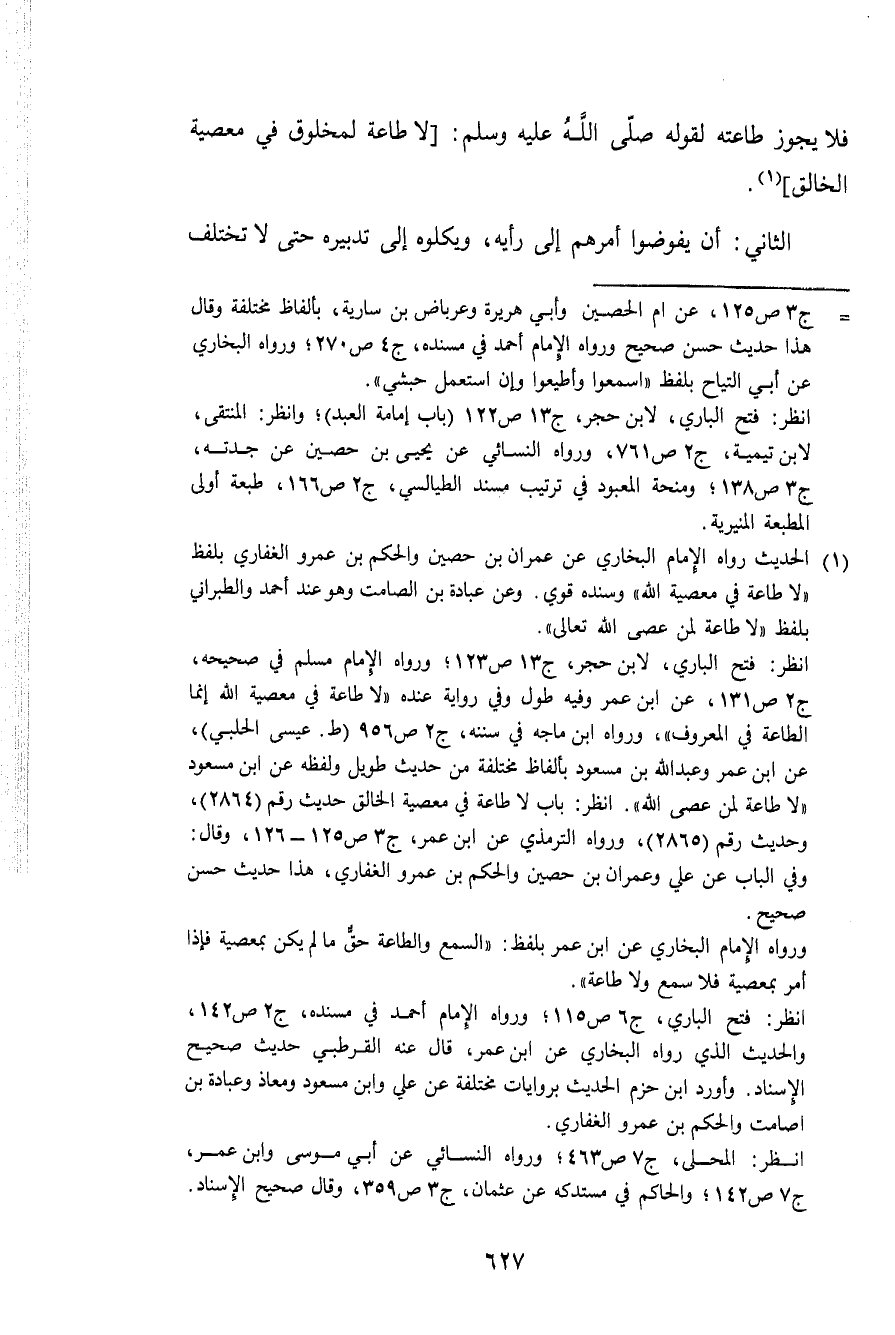 فلا يجوز طاعته لقوله صلّى اللَّهُ عليه وسلم: [لا طاعة لمخلوق في معصية
الخالق](١).
الثاني: أن يفوضوا أمرهم إلى رأيه، ويكلوه إلى تدبيره حتى لا تختلف
= ج٣ ص١٢٥، عن ام الحصين وأبي هريرة وعرباض بن سارية، بألفاظ مختلفة وقال
هذا حديث حسن صحيح ورواه الإمام أحمد في مسنده، ج٤ ص٢٧٠؛ ورواه البخاري
عن أبي التياح بلفظ «اسمعوا وأطيعوا وإن استعمل حبشي».
انظر: فتح الباري، لابن حجر، ج١٣ ص١٢٢ (باب إمامة العبد)؛ وانظر: المنتقى،
لابن تيمية، ج٢ ص٧٦١، ورواه النسائي عن يحيى بن حصين عن جدته،
ج٣ ص١٣٨؛ ومنحة المعبود في ترتيب مسند الطيالسي، ج٢ ص١٦٦، طبعة أولى
المطبعة المنيرية.
(١) الحديث رواه الإمام البخاري عن عمران بن حصين والحكم بن عمرو الغفاري بلفظ
«لا طاعة في معصية الله» وسنده قوي. وعن عبادة بن الصامت وهو عند أحمد والطبراني
بلفظ «لا طاعة لمن عصى الله تعالى».
انظر: فتح الباري، لابن حجر، ج١٣ ص١٢٣؛ ورواه الإمام مسلم في صحيحه،
ج٢ ص١٣١، عن ابن عمر وفيه طول وفي رواية عنده «لا طاعة في معصية الله إنما
الطاعة في المعروف»، ورواه ابن ماجه في سننه، ج٢ ص٩٥٦ (ط. عيسى الحلبي)،
عن ابن عمر وعبدالله بن مسعود بألفاظ مختلفة من حديث طويل ولفظه عن ابن مسعود
«لا طاعة لمن عصى الله». انظر: باب لا طاعة في معصية الخالق حديث رقم (٢٨٦٤)،
وحديث رقم (٢٨٦٥)، ورواه الترمذي عن ابن عمر، ج٣ ص١٢٥ – ١٢٦، وقال:
وفي الباب عن علي وعمران بن حصين والحكم بن عمرو الغفاري، هذا حديث حسن
صحيح.
ورواه الإمام البخاري عن ابن عمر بلفظ: «السمع والطاعة حقٌّ ما لم يكن بمعصية فإذا
أمر بمعصية فلا سمع ولا طاعة».
انظر: فتح الباري، ج٦ ص١١٥؛ ورواه الإمام أحمد في مسنده، ج٢ ص١٤٢،
والحديث الذي رواه البخاري عن ابن عمر، قال عنه القرطبي حديث صحيح
الإسناد. وأورد ابن حزم الحديث بروايات مختلفة عن علي وابن مسعود ومعاذ وعبادة بن
اصامت والحكم بن عمرو الغفاري.
انظر: المحلى، ج٧ ص٤٦٣؛ ورواه النسائي عن أبي موسى وابن عمر،
ج٧ ص١٤٢؛ والحاكم في مستدكه عن عثمان، ج٣ ص٣٥٩، وقال صحيح الإسناد.
٦٢٧